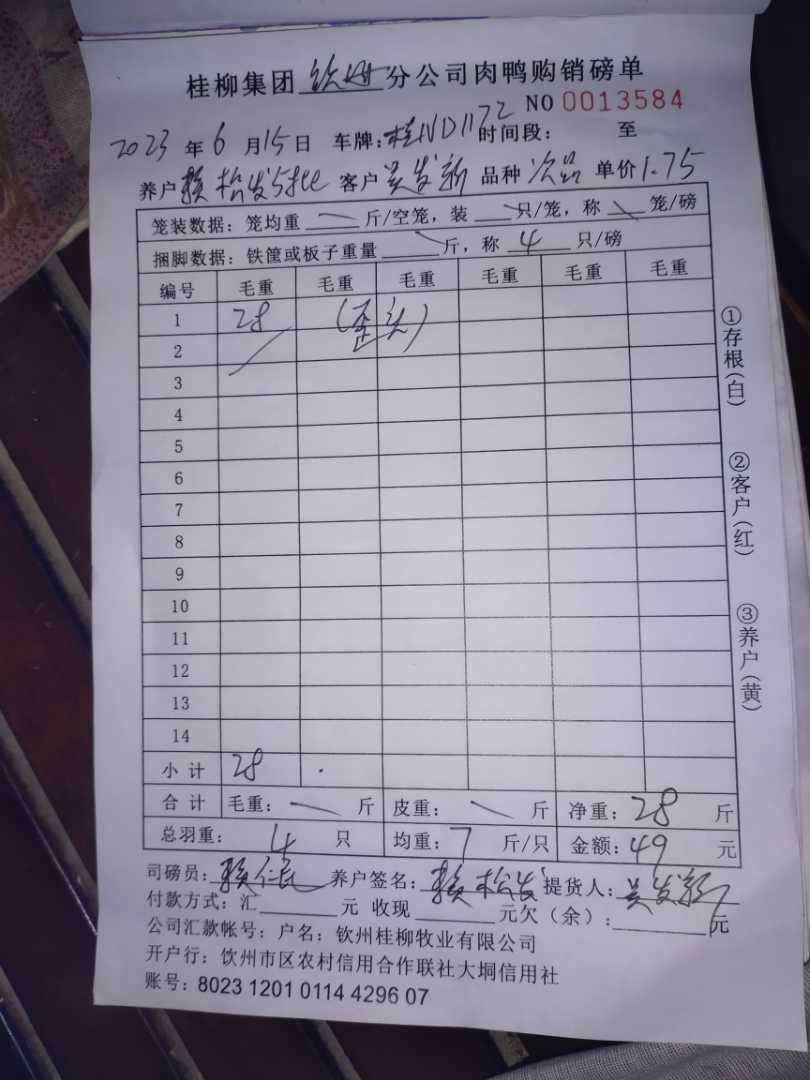 桂柳集团 钦州 分公司肉鸭购销磅单
NO 0013584
2023 年 6 月 15 日 车牌：桂ND1172 时间段： 至
养户 赖松发5批 客户 吴发新 品种 次品 单价 1.75
笼装数据：笼均重 斤/空笼，装 只/笼，称 笼/磅
捆脚数据：铁筐或板子重量 斤，称 4 只/磅
编号 毛重 毛重 毛重 毛重 毛重 毛重
1 28 (歪头)
2
3
4
5
6
7
8
9
10
11
12
13
14
小计 28
合计 毛重： 斤 皮重： 斤 净重：28 斤
总羽重： 4 只 均重：7 斤/只 金额：49 元
司磅员：赖仁良 养户签名：赖松发 提货人：吴发新
付款方式：汇 元 收现 元欠（余）： 元
公司汇款帐号：户名：钦州桂柳牧业有限公司
开户行：饮州市区农村信用合作联社大垌信用社
账号：8023 1201 0114 4296 07
①存根（白）
②客户（红）
③养户（黄）